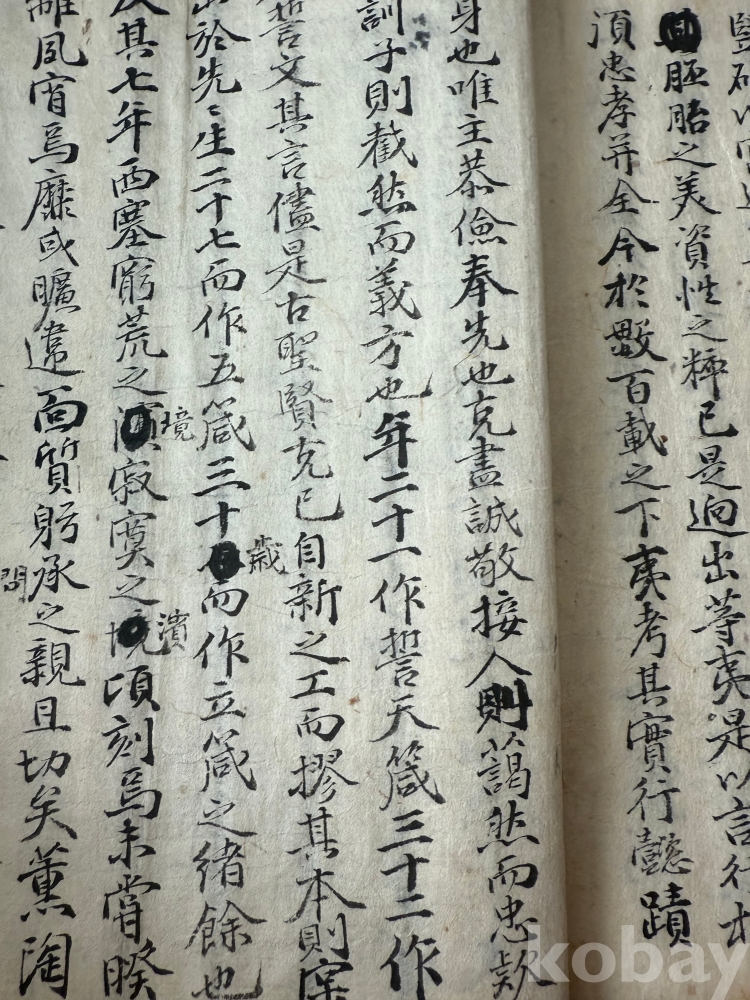 胚胎之美資性之粹已是逈出等夷是以言行
須忠孝并全今於數百載之下夷考其實行懿蹟
身也唯主恭儉奉先也克盡誠敬接人則藹然而忠款
訓子則截然而義方也年二十一作誓天箴三十二作
誓文其言儘是古聖賢克己自新之工而摎其本則寔
於先〻生二十七而作五箴三十歲而作立箴之緒餘也
其七年西塞窮荒之境寂寞之濱頃刻焉未嘗暌
離夙宵焉靡或曠違面質躬承之親且切矣薰陶
問
kobay